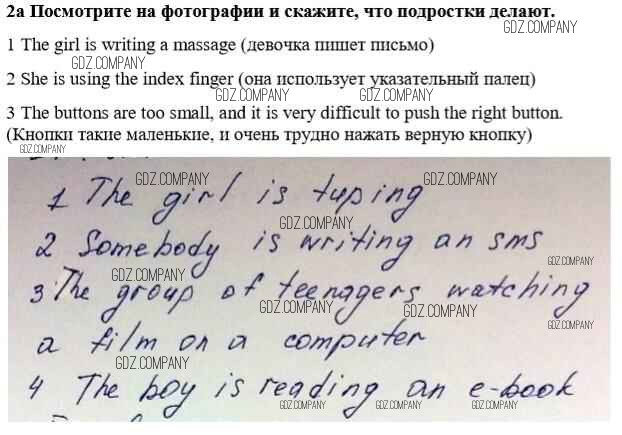 2а Посмотрите на фотографии и скажите, что подростки делают.
GDZ.COMPANY
1 The girl is writing a massage (девочка пишет письмо)
GDZ.COMPANY
2 She is using the index finger (она использует указательный палец)
GDZ.COMPANY GDZ.COMPANY
3 The buttons are too small, and it is very difficult to push the right button.
(Кнопки такие маленькие, и очень трудно нажать верную кнопку)
GDZ.COMPANY
GDZ.COMPANY GDZ.COMPANY
1 The girl is typing
GDZ.COMPANY
2 Somebody is writing an sms
GDZ.COMPANY GDZ.COMPANY
3 The group of teenagers watching
GDZ.COMPANY GDZ.COMPANY GDZ.COMPANY
a film on a computer
GDZ.COMPANY
4 The boy is reading an e-book
GDZ.COMPANY GDZ.COMPANY GDZ.COMPANY